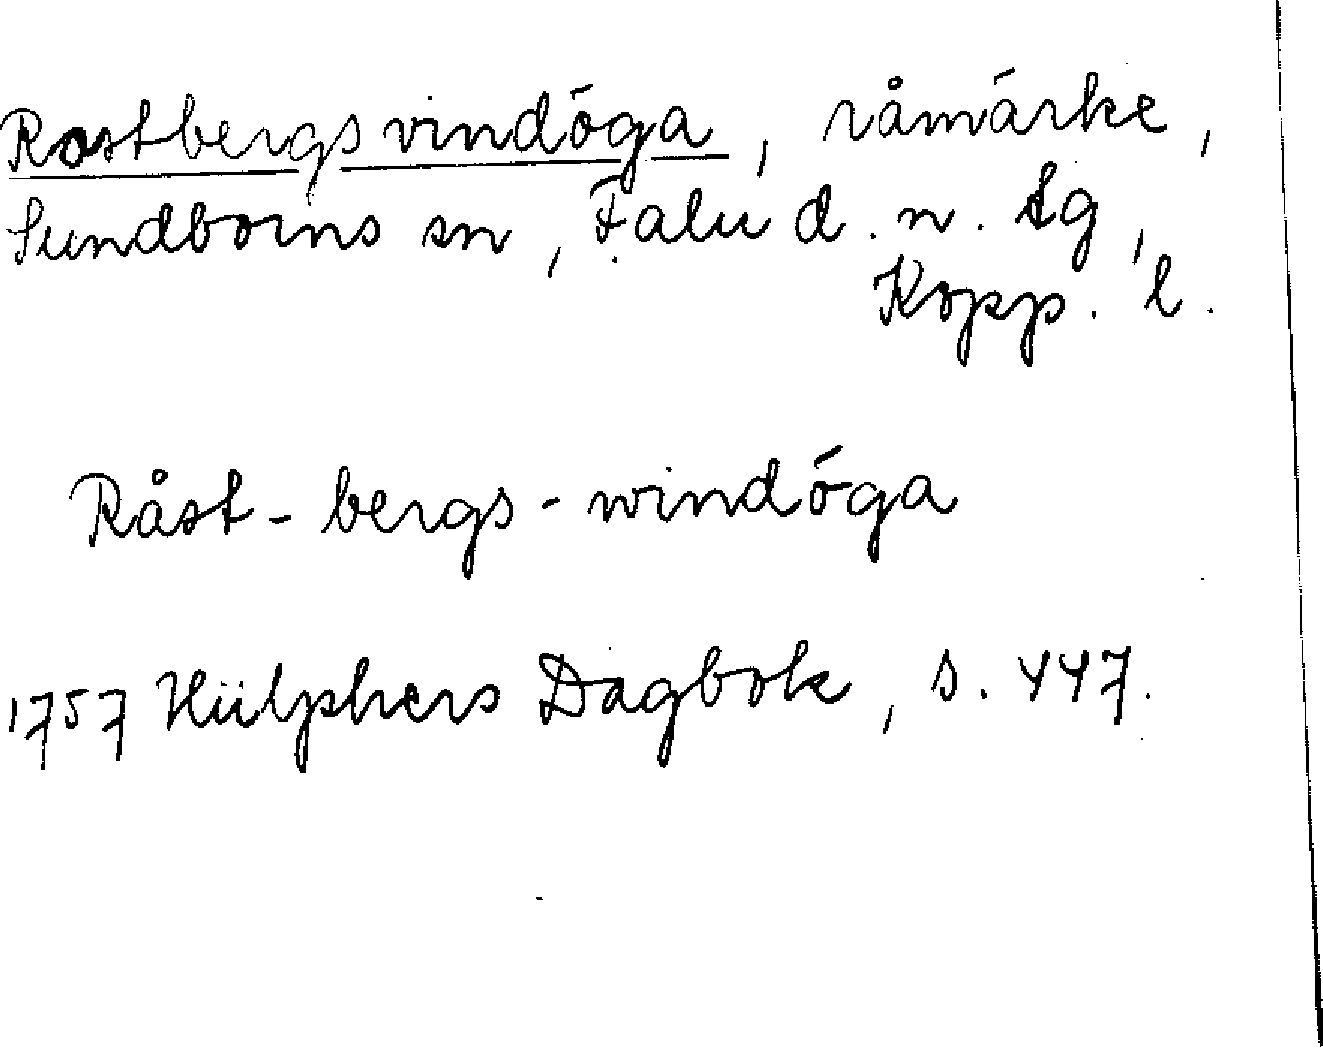 Rostbergsvindöga, råmärke,
Sundborns sn, Falu d. n. tg,
Kopp. l.
Råst-bergs-windöga
1757 Hülphers Dagbok, s. 447.